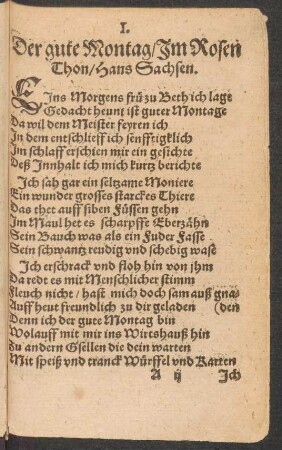 I.
Der gute Montag/Im Rosen
Thon/Hans Sachsen.
EIns Morgens frü zu Beth ich lage
Gedacht heunt ist guter Montage
Da wil dem Meister feyren ich
In dem entschlieff ich senfftigklich
Im schlaff erschien mir ein gesichte
Deß Innhalt ich mich kurtz berichte
Ich sah gar ein seltzame Moniere
Ein wunder grosses starckes Thiere
Das thet auff siben Füssen gehn
Im Maul het es scharpffe Eberzähn
Sein Bauch was als ein Fuder Fasse
Sein schwantz reudig vnd schebig wase
Ich erschrack vnd floh hin von jhm
Da redt es mit Menschlicher stimm
Fleuch nicht/hast mich doch sam auß gna-
Auff heut freundlich zu dir geladen (den
Denn ich der gute Montag bin
Wolauff mit mir ins Wirtshauß hin
Zu andern Gsellen die dein warten
Mit speiß vnd tranck Würffel vnd Karten
A ij Ich